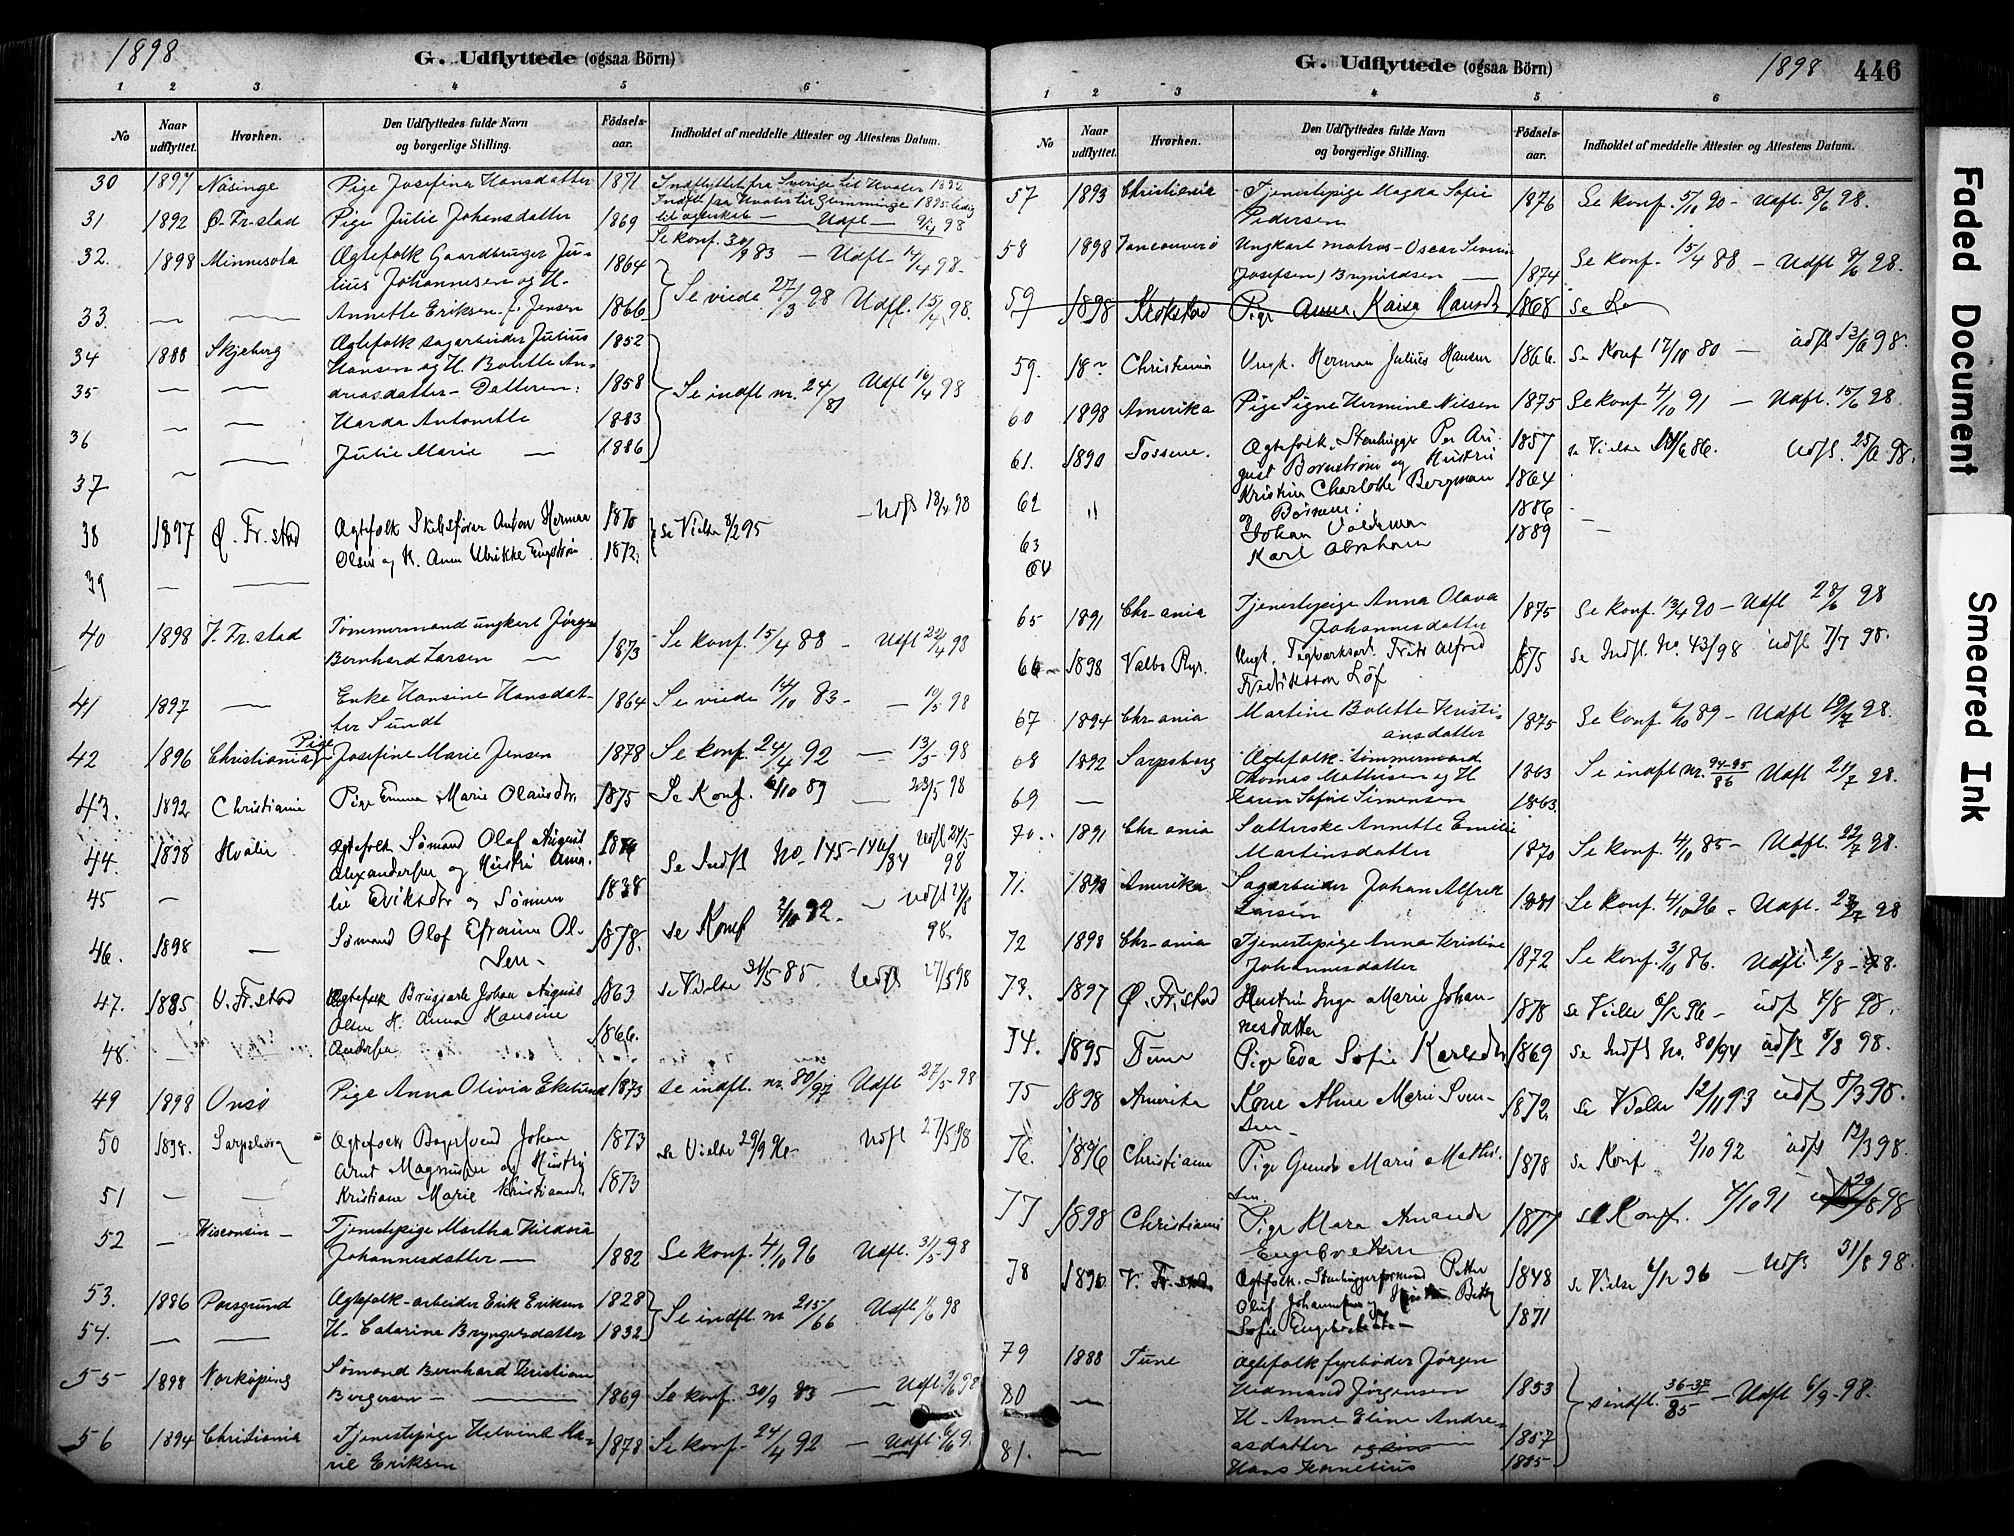 1898
G. Udflyttede (ogsaa Börn)
1 2 3 4 5 6
No
Naar udflyttet.
Hvorhen.
Den Udflyttedes fulde Navn og borgerlige Stilling.
Födsels-aar.
Indholdet af meddelte Attester og Attestens Datum.
30 1897 Näsinge Pige Josefina Hansdatter 1871 Indflyttet fra Sverige til Hvaler 1892
Indfl fra Hvaler til Glemminge 1895 ledig
til ægteskab — Udfl — 9/4 98
31 1892 Ø. Fr.stad Pige Julie Johansdatter 1869 Se konf. 30/9 83 — Udfl 14/4 98
32. 1898 Minnesota Ægtefolk Gaardbruger Ju-
lius Johannesen og H. 1864
33. — — Annette Eriksen f. Jensen 1866 Se viede 27/3 98 Udfl. 15/4 98.
34 1888 Skjeberg Ægtefolk sagarbeider Julius 1852
Hansen og H. Bolette An-
35 — — driasdatter — Datteren: 1858 Se indfl nr. 24/81 Udfl 16/4 98
36 — — Harda Antonette 1883
37 — — Julie Marie — 1886
38 1897 Ø. Fr. stad Ægtefolk Skibsfører Anton Herman 1870 se Vielse 3/2 95 — Udfl 18/4 98
39 — — Olsen og H. Anna Ulrikke Engström 1872.
40 1898 V. Fr. stad Tømmermand ungkarl Jørgen
Bernhard Larsen — 1873 Se konf. 15/4 88 — Udfl 22/4 98
41 1897 — Enke Hansine Hansdat-
ter Sundt 1864 Se viede 14/10 83 — — 10/5 98
42 1896 Christiania Pige Josefine Marie Jensen 1878 Se konf. 24/4 92 — 13/5 98
43. 1892 Christiania Pige Emma Marie Olausdtr 1875 Se Konf. 6/10 89 — 23/5 98
44. 1898 Hvaler Ægtefolk Sømand Olaf August
Alexandersen og Hustru Ama-
se Indfl No. 145-146/84 Udfl 24/5 98
45 — lie Eriksdtr og Sønnen 1838
46. 1898 — Sømand Olof Efraim Ol-
sen — 1878. se Konf 2/10 92. — Udfl 24/5 98.
47. 1885 V. Fr. stad Ægtefolk Brugsarb Johan August 1863 se Vielse 31/5 85. Udfl 27/5 98
Olsen H. Anna Hansine
48. — Andersen 1866.
49 1898 Onsö Pige Anna Olivia Ekelund 1873 se indfl. nr. 80/97 Udfl 27/5 98
50 1898. Sarpsborg Ægtefolk Bagersvend Johan 1873 se Vielse Udfl 27/5 98
Arnt Magnusen og Hustru
51 — — Kristiane Marie Kristiansdtr 1873
52 — Wisconsin — Tjenestepige Martha Hildora
Johannesdatter — 1882 Se konf. 4/10 96 Udfl. 31/5 98
53. 1886 Porsgrund Ægtefolk - arbeider Erik Eriksen 1828 Se indfl. nr 215/66 Udfl 98
54. — — H. Catarina Bryngelsdatter 1832
55 1898 Norköping Sømand Bernhard Kristian
Bergersen — 1869 Se konf. 30/9 83 — Udfl 98
56 1894 Christiania Tjenestepige Helvine Ma-
rie Eriksen 1878 Se konf. 24/4 92 — Udfl 6/6 9.
G. Udflyttede (ogsaa Börn)
1898 446
1 2 3 4 5 6
No
Naar udflyttet.
Hvorhen.
Den Udflyttedes fulde Navn og borgerlige Stilling.
Födsels-aar.
Indholdet af meddelte Attester og Attestens Datum.
57 1893 Christiania Tjenestepige Magda Sofie
Pedersen 1876 Se konf. 5/10 90 — Udfl. 8/6 98.
58 1898 Vancouverö Ungkarl matros - Oscar Severin
(Josefsen) Brynildsen — 1874 Se konf. 15/4 88 — Udfl 8/6 98.
59 1898 Krokstad Pige Anna Kaisa Hansdtr 1868 se
59. 18 Christiania Ungk. Herman Julius Hansen 1866. se Konf 17/10 80 — udfl 13/6 98.
60 1898 Amerika Pige Signe Hermine Nilsen 1875 Se konf 4/10 91 — Udfl. 15/6 98
61. 1890 Tossene. Ægtefolk. Stenhugger Per Au- 1857 se Vielse 6 86. Udfl. 25/6 98.
gust Bornström og Hustru
Kristina Charlotte Bergman 1864
62 " og Børnene: 1886 —
63 Johan Valdemar 1889 —
64 Karl Abraham
65 1891 Chr-ania Tjenestepige Anna Olava
Johannesdatter 1875 Se konf. 13/4 90 — Udfl 28/6 98
66 — 1898 Valbo Ryr. Ungk. Teglverksarb. Frits Alfred
Fredriksson Löf 1875 se Indfl. No. 43/98 udfl 7/7 98.
67 1894 Chr-ania Martine Bolette Kristi-
ansdatter 1875 Se konf 6/10 89 — Udfl 19/7 98.
68 1892 Sarpsborg Ægtefolk - tømmermand
Thomas Mathisen og H 1863 Se indfl nr. 94-95/86 Udfl 21/7 98.
69 — Karen Sofie Simensen 1863
70. 1891 Chr-ania Sætterske Annette Emilie
Martinsdatter 1870 Se konf. 4/10 85 — Udfl. 22/7 98.
71. 1898 Amerika Sagarbeider Johan Alfred
Larsen 1881 Se konf. 4/10 96 - Udfl. 23/7 98
72 1898 Chr-ania Tjenestepige Anna Kristine
Johannesdatter 1872 Se konf. 3/10 86. Udfl. 2/8 - 98.
73. 1897 Ø. Fr.stad Hustru Inga Marie Johan-
nesdatter 1878 se Vielse 96 — udfl 4/8 98.
74. 1895 Tune Pige Eva Sofie Karlsdtr 1869 se Indfl No. 80/94 udfl 8/8 98.
75 1898 Amerika Kone Alma Marie Sven-
sen — 1872. se Vielse 12/11 93 udfl 8/3 98.
76. 1896 Christiania Pige Gunda Marie Mathi-
sen. 1878 se Konf 2/10 92 udfl 12/3 98.
77 1898 Christiania Pige Klara Amanda
Engebretsen 1877 se Konf. 4/10 91 29/8 98
78 1896 V. Fr.stad Ægtefolk. Stenhuggerformand Petter 1848 se Vielse 96 — Udfl 31/8 98.
Oluf Johannesen og
Sofie Engebretsdtr — 1871
79 1888 Tune Ægtefolk fyrbøder Jørgen
80 — Hidmand Jørgensen 1853 s indfl. 36-37/85 — Udfl 6/9 - 98.
H. Anne Eline Andre-
81. — asdatter og søn 1857
Hans Kornelius 1885
Faded Document
Smeared Ink